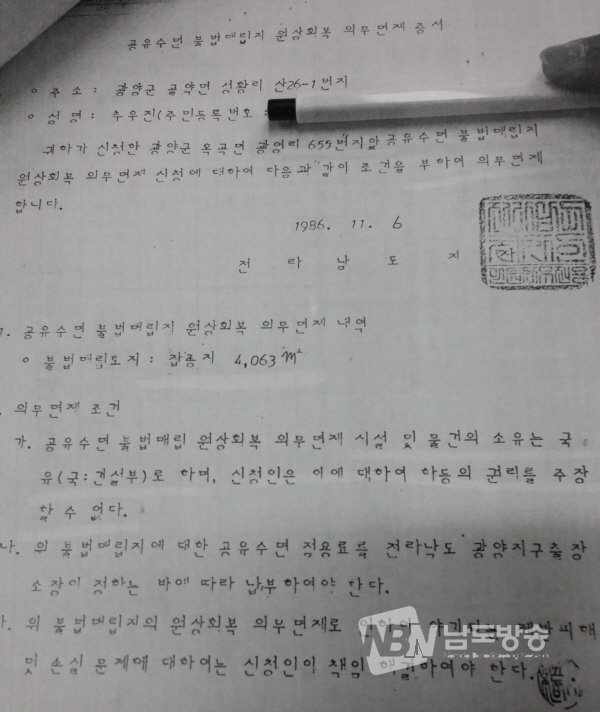 공유수면 불법매립지 원상회복 의무면제 증서
ㅇ주소 : 광양군 골약면 성황리 산26-1번지
ㅇ성명 : 추우진(주민등록번호 :
귀하가 신청한 광양군 옥곡면 광영리 655번지앞 공유수면 불법매립지
원상회복 의무면제 신청에 대하여 다음과 같이 조건을 부하여 의무면제
합니다.
1986. 11. 6
전 라 남 도 지
1. 공유수면 불법매립지 원상회복 의무면제 내역
ㅇ 불법매립토지 : 잡종지 4,063㎡
. 의무면제 조건
가. 공유수면 불법매립 원상회복 의무면제 시설 및 물건의 소유는 국
유(국:건설부)로 하며, 신청인은 이에 대하여 하등의 권리를 주장
할 수 없다.
나. 위 불법매립지에 대한 공유수면 점용료를 전라남도 광양지구출장
소장이 정하는 바에 따라 납부하여야 한다.
다. 위 불법매립지의 원상회복 의무면제로 야기되는
및 손실 문제에 대하여는 신청인이 책임 해결하여야 한다.
NBN 남도방송